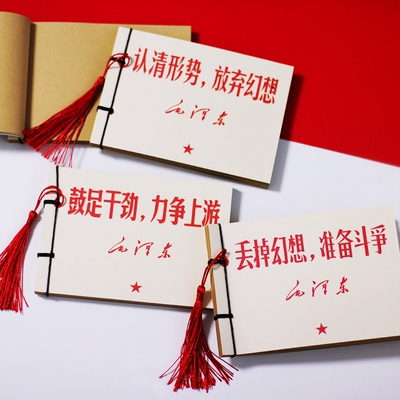 认清形势，放弃幻想
毛泽东
鼓足干劲，力争上游
毛泽东
丢掉幻想，准备斗爭
毛泽东